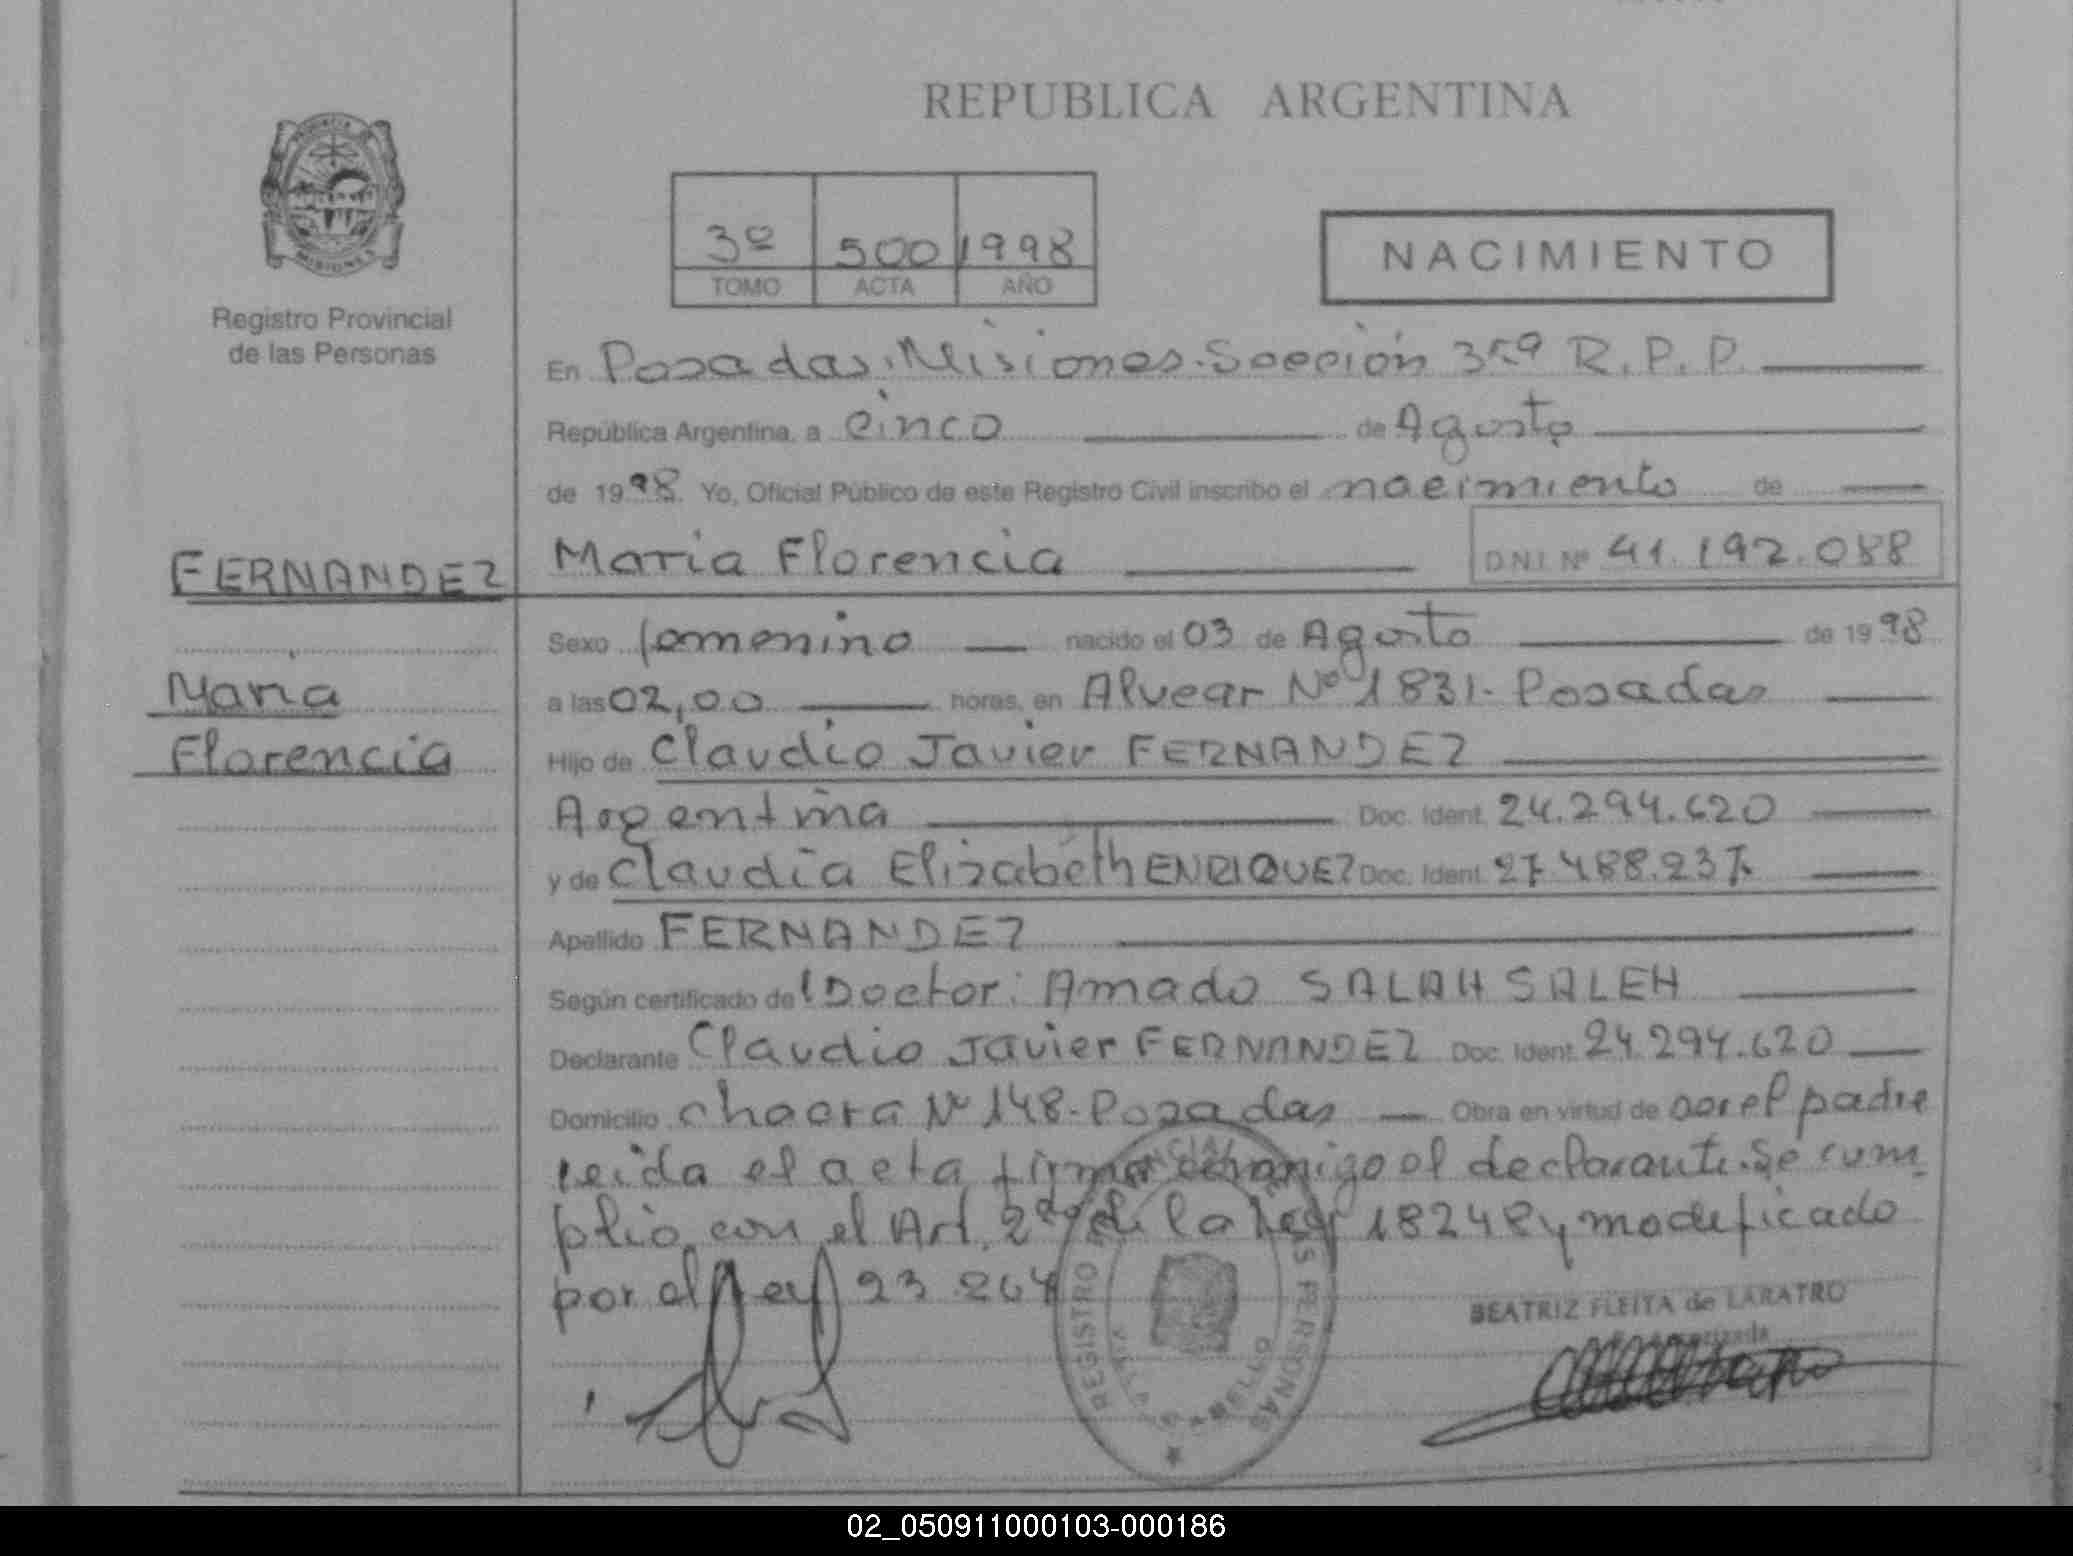 REPUBLICA ARGENTINA
PROVINCIA DE
MISIONES
Registro Provincial
de las Personas
3º 500 1998
TOMO ACTA AÑO
NACIMIENTO
En Posadas, Misiones. Sección 35ª R. P. P.
República Argentina, a cinco de Agosto
de 1998. Yo, Oficial Público de este Registro Civil inscribo el nacimiento de
FERNANDEZ
María Florencia D N I Nº 41.192.088
Sexo femenino nacido el 03 de Agosto de 1998
María
a las 02,00 horas, en Alvear Nº 1831- Posadas
Florencia
Hijo de Claudio Javier FERNANDEZ
Argentina Doc. Ident. 24.294.620
y de Claudia Elizabeth ENRIQUEZ Doc. Ident. 27.488.237
Apellido FERNANDEZ
Según certificado del Doctor: Amado SALAH SALEH
Declarante Claudio Javier FERNANDEZ Doc. Ident. 24.294.620
Domicilio chacra Nº 148- Posadas Obra en virtud de ser el padre
leida el acta firma conmigo el declarante. Se cum-
plio con el Art. 2do de la Ley 18248 y modificado
por el Ley 23.264
REGISTRO PROVINCIAL DE LAS PERSONAS
VILLA CABELLO
BEATRIZ FLEITA de LARATRO
02_050911000103-000186